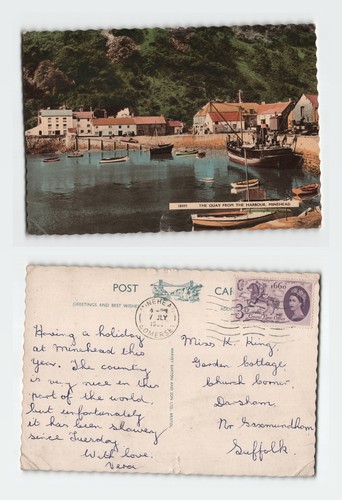 THE QUAY FROM THE HARBOUR, MINEHEAD
POST
GREETINGS AND BEST WISHES
MINEHEAD
7 JLY
SOMERSET
1660
3D
Having a holiday
at Minehead this
year. The country
is very nice in this
part of the world,
but unfortunately
it has been showery
since Tuesday
With love.
Vera
Miss K. King,
Garden Cottage
Church Corner.
Darsham.
Nr Saxmundham
Suffolk.